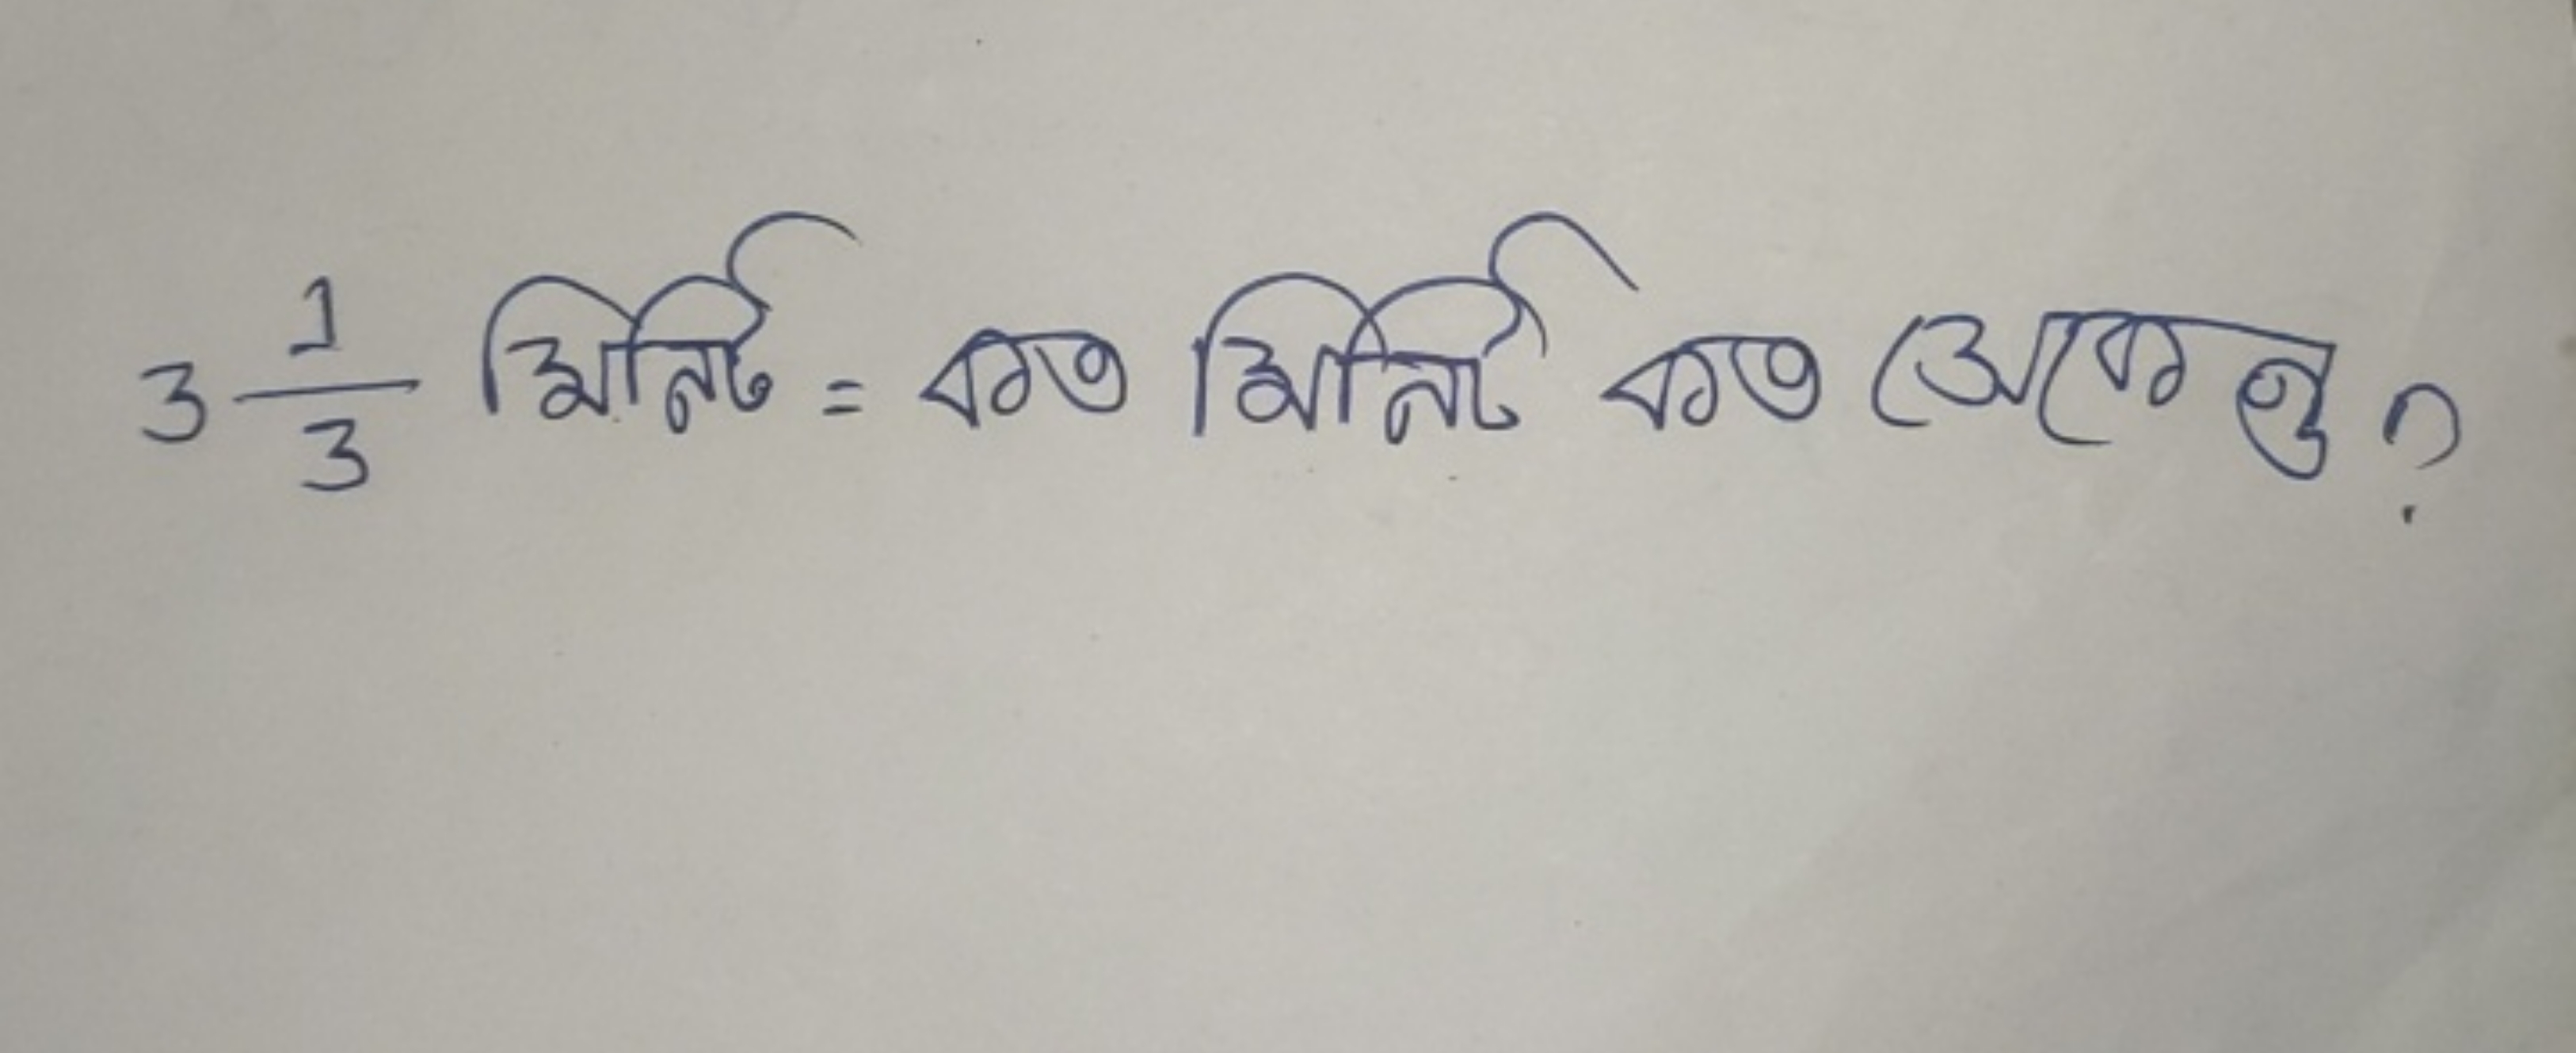 3 1/3 মিনিট = কত মিনিট কত সেকেন্ড ?